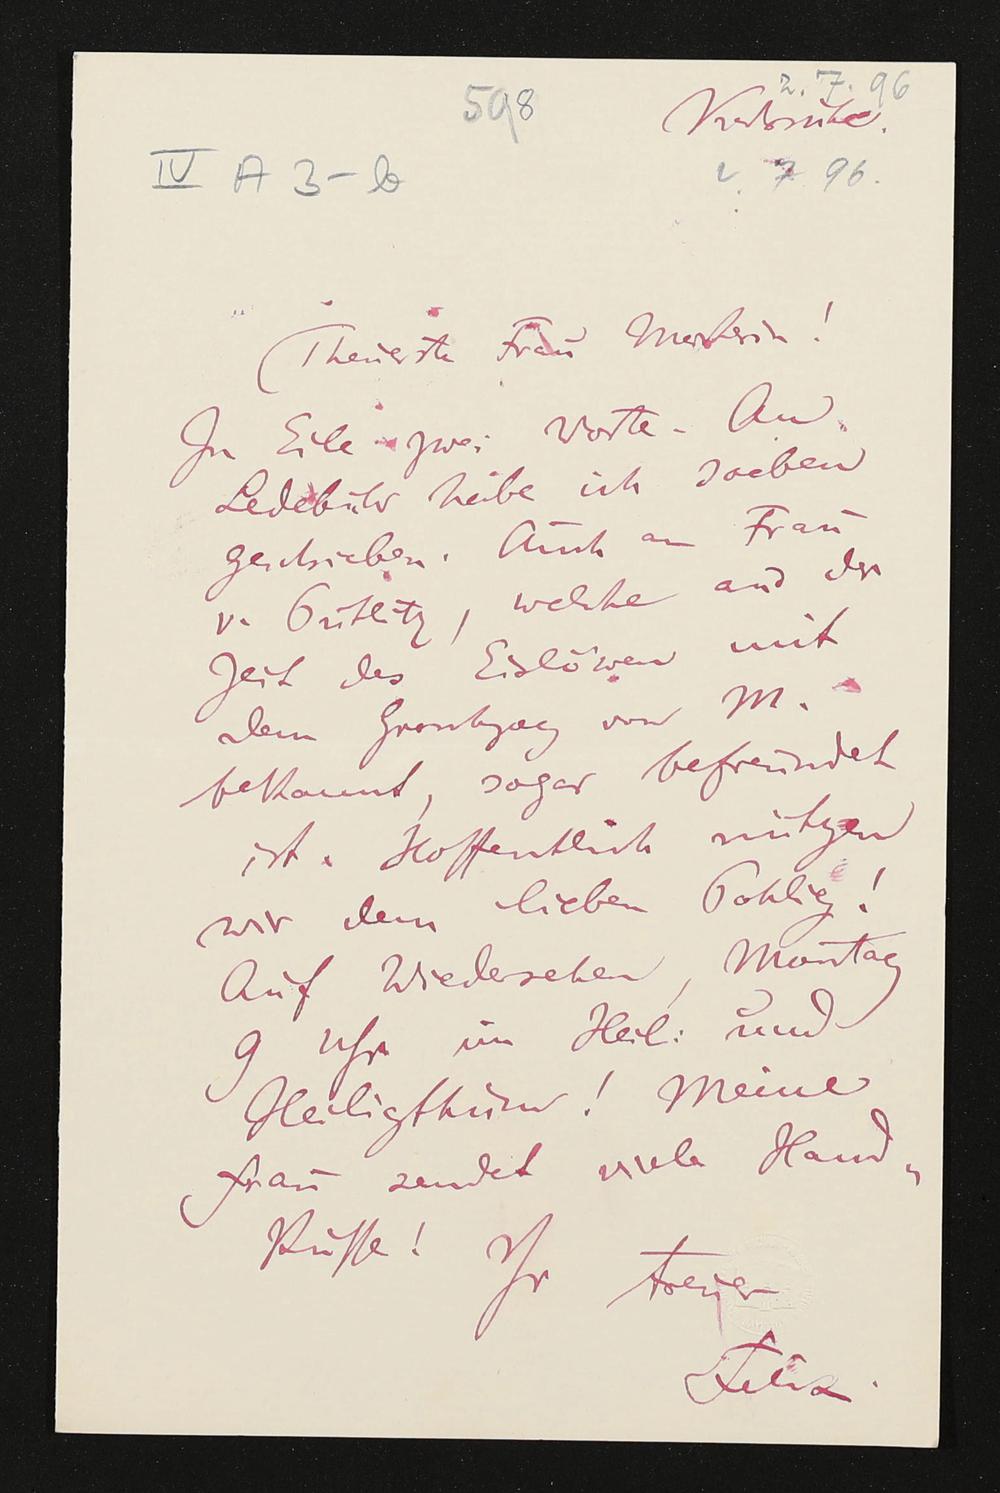 598
2. 7. 96
Karlsruhe.
IV A 3-b
2. 7 96.
Theuerste Frau Meisterin!
In Eile zwei Worte. An
Ledebur habe ich soeben
geschrieben. Auch an Frau
v. Putlitz, welche aus der
Zeit des mit
dem Grosshzog von M.
bekannt, sogar befreundet
ist. Hoffentlich nützen
wir dem lieben Pohlig!
Auf Wiedersehen, Montag
9 Uhr im Heil: und
Heiligthum! Meine
Frau sendet viele Hand-
Küsse! Ihr treuer
Felix.